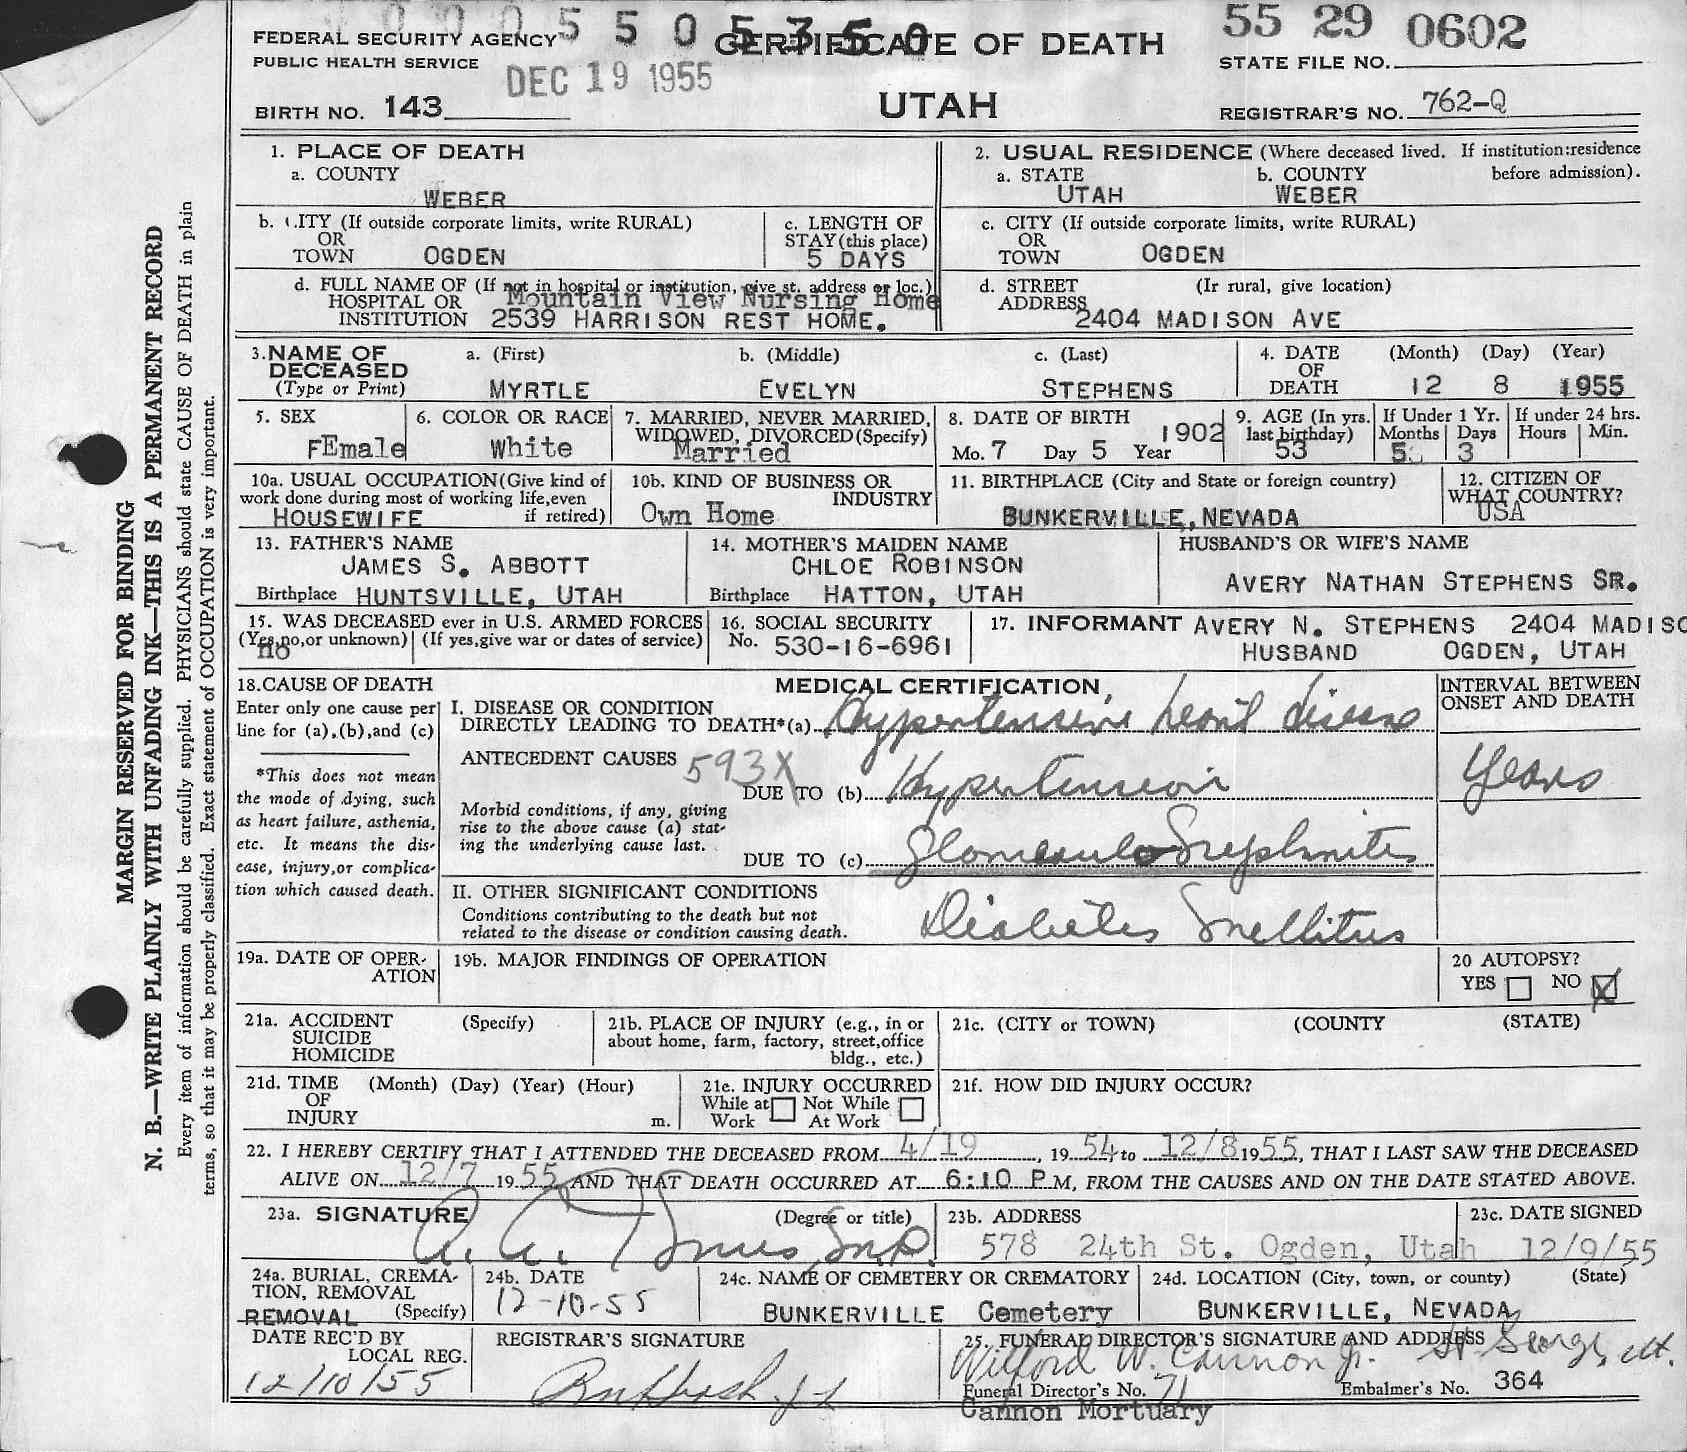 0 0 0 5 5 0 5 3 5 0
55 29 0602
FEDERAL SECURITY AGENCY CERTIFICATE OF DEATH
PUBLIC HEALTH SERVICE STATE FILE NO.
DEC 19 1955
BIRTH NO. 143 UTAH REGISTRAR'S NO. 762-Q
MARGIN RESERVED FOR BINDING
N. B.—WRITE PLAINLY WITH UNFADING INK—THIS IS A PERMANENT RECORD
Every item of information should be carefully supplied. PHYSICIANS should state CAUSE OF DEATH in plain
terms, so that it may be properly classified. Exact statement of OCCUPATION is very important.
1. PLACE OF DEATH
a. COUNTY
WEBER
2. USUAL RESIDENCE (Where deceased lived. If institution:residence
a. STATE b. COUNTY before admission).
UTAH WEBER
b. CITY (If outside corporate limits, write RURAL)
OR
TOWN OGDEN
c. LENGTH OF
STAY (this place)
5 DAYS
c. CITY (If outside corporate limits, write RURAL)
OR
TOWN OGDEN
d. FULL NAME OF (If not in hospital or institution, give st. address or loc.)
HOSPITAL OR Mountain View Nursing Home
INSTITUTION 2539 HARRISON REST HOME.
d. STREET (Ir rural, give location)
ADDRESS
2404 MADISON AVE
3. NAME OF a. (First) b. (Middle) c. (Last)
DECEASED
(Type or Print) MYRTLE EVELYN STEPHENS
4. DATE (Month) (Day) (Year)
OF
DEATH 12 8 1955
5. SEX
FEmale
6. COLOR OR RACE
White
7. MARRIED, NEVER MARRIED,
WIDOWED, DIVORCED (Specify)
Married
8. DATE OF BIRTH
Mo. 7 Day 5 Year 1902
9. AGE (In yrs.
last birthday)
53
If Under 1 Yr.
Months Days
5 3
If under 24 hrs.
Hours Min.
10a. USUAL OCCUPATION (Give kind of
work done during most of working life, even
HOUSEWIFE if retired)
10b. KIND OF BUSINESS OR
INDUSTRY
Own Home
11. BIRTHPLACE (City and State or foreign country)
BUNKERVILLE, NEVADA
12. CITIZEN OF
WHAT COUNTRY?
USA
13. FATHER'S NAME
JAMES S. ABBOTT
Birthplace HUNTSVILLE, UTAH
14. MOTHER'S MAIDEN NAME
CHLOE ROBINSON
Birthplace HATTON, UTAH
HUSBAND'S OR WIFE'S NAME
AVERY NATHAN STEPHENS SR.
15. WAS DECEASED ever in U.S. ARMED FORCES
(Yes, no, or unknown) (If yes, give war or dates of service)
no
16. SOCIAL SECURITY
No. 530-16-6961
17. INFORMANT AVERY N. STEPHENS 2404 MADISO
HUSBAND OGDEN, UTAH
18. CAUSE OF DEATH
Enter only one cause per
line for (a), (b), and (c)
*This does not mean
the mode of dying, such
as heart failure, asthenia,
etc. It means the dis-
ease, injury, or complica-
tion which caused death.
MEDICAL CERTIFICATION
I. DISEASE OR CONDITION
DIRECTLY LEADING TO DEATH*(a) Hypertensive heart disease
ANTECEDENT CAUSES 593X
DUE TO (b) Hypertension
Morbid conditions, if any, giving
rise to the above cause (a) stat-
ing the underlying cause last.
DUE TO (c) Glomerulo Nephritis
INTERVAL BETWEEN
ONSET AND DEATH
Years
II. OTHER SIGNIFICANT CONDITIONS
Conditions contributing to the death but not
related to the disease or condition causing death.
Diabetes Mellitus
19a. DATE OF OPER-
ATION
19b. MAJOR FINDINGS OF OPERATION
20 AUTOPSY?
YES NO X
21a. ACCIDENT (Specify)
SUICIDE
HOMICIDE
21b. PLACE OF INJURY (e.g., in or
about home, farm, factory, street, office
bldg., etc.)
21c. (CITY or TOWN) (COUNTY (STATE)
21d. TIME (Month) (Day) (Year) (Hour)
OF
INJURY m.
21e. INJURY OCCURRED
While at Not While
Work At Work
21f. HOW DID INJURY OCCUR?
22. I HEREBY CERTIFY THAT I ATTENDED THE DECEASED FROM 4/19, 19 54 to 12/8 19 55, THAT I LAST SAW THE DECEASED
ALIVE ON 12/7 19 55 AND THAT DEATH OCCURRED AT 6:10 P M, FROM THE CAUSES AND ON THE DATE STATED ABOVE.
23a. SIGNATURE (Degree or title)
M.D.
23b. ADDRESS
578 24th St. Ogden, Utah
23c. DATE SIGNED
12/9/55
24a. BURIAL, CREMA-
TION, REMOVAL
REMOVAL (Specify)
24b. DATE
12-10-55
24c. NAME OF CEMETERY OR CREMATORY
BUNKERVILLE Cemetery
24d. LOCATION (City, town, or county) (State)
BUNKERVILLE, NEVADA
DATE REC'D BY
LOCAL REG.
12/10/55
REGISTRAR'S SIGNATURE
25. FUNERAL DIRECTOR'S SIGNATURE AND ADDRESS
Wilford W. Cannon Jr. St. George, Ut.
Funeral Director's No. 71 Embalmer's No. 364
Cannon Mortuary